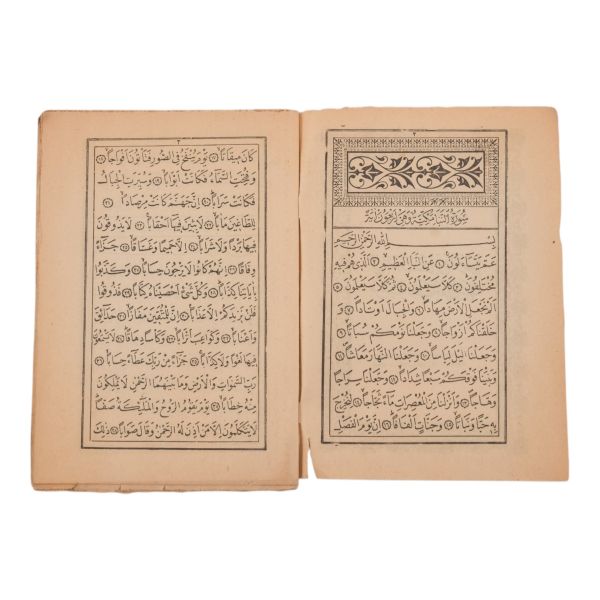 ٢
سورة النبأ مكية وهي اربعون آية
بسم الله الرحمن الرحيم
عَمَّ يَتَسَاءَلُونَ ۝١ عَنِ النَّبَاِ الْعَظِيمِ ۝٢ اَلَّذِى هُمْ فِيهِ
مُخْتَلِفُونَ ۝٣ كَلَّا سَيَعْلَمُونَ ۝٤ ثُمَّ كَلَّا سَيَعْلَمُونَ ۝٥
اَلَمْ نَجْعَلِ الْاَرْضَ مِهَاداً ۝٦ وَالْجِبَالَ اَوْتَاداً ۝٧ وَ
خَلَقْنَاكُمْ اَزْوَاجاً ۝٨ وَجَعَلْنَا نَوْمَكُمْ سُبَاتاً ۝٩
وَجَعَلْنَا الَّيْلَ لِبَاساً ۝١٠ وَجَعَلْنَا النَّهَارَ مَعَاشاً ۝١١
وَبَنَيْنَا فَوْقَكُمْ سَبْعاً شِدَاداً ۝١٢ وَجَعَلْنَا سِرَاجاً
وَهَّاجاً ۝١٣ وَاَنْزَلْنَا مِنَ الْمُعْصِرَاتِ مَاءً ثَجَّاجاً ۝١٤ لِنُخْرِجَ
بِهِ حَبّاً وَنَبَاتاً ۝١٥ وَجَنَّاتٍ اَلْفَافاً ۝١٦ اِنَّ يَوْمَ الْفَصْلِ
٣
كَانَ مِيقَاتاً ۝١٧ يَوْمَ يُنْفَخُ فِى الصُّورِ فَتَاْتُونَ اَفْوَاجاً ۝١٨
وَفُتِحَتِ السَّمَاءُ فَكَانَتْ اَبْوَاباً ۝١٩ وَسُيِّرَتِ الْجِبَالُ
فَكَانَتْ سَرَاباً ۝٢٠ اِنَّ جَهَنَّمَ كَانَتْ مِرْصَاداً ۝٢١
لِلطَّاغِينَ مَاٰباً ۝٢٢ لَابِثِينَ فِيهَا اَحْقَاباً ۝٢٣ لَا يَذُوقُونَ
فِيهَا بَرْداً وَلَا شَرَاباً ۝٢٤ اِلَّا حَمِيماً وَغَسَّاقاً ۝٢٥ جَزَاءً
وِفَاقاً ۝٢٦ اِنَّهُمْ كَانُوا لَا يَرْجُونَ حِسَاباً ۝٢٧ وَكَذَّبُوا
بِاٰيَاتِنَا كِذَّاباً ۝٢٨ وَكُلَّ شَىْءٍ اَحْصَيْنَاهُ كِتَاباً ۝٢٩ فَذُوقُوا
فَلَنْ نَزِيدَكُمْ اِلَّا عَذَاباً ۝٣٠ اِنَّ لِلْمُتَّقِينَ مَفَازاً ۝٣١ حَدَائِقَ
وَاَعْنَاباً ۝٣٢ وَكَوَاعِبَ اَتْرَاباً ۝٣٣ وَكَاْساً دِهَاقاً ۝٣٤ لَا يَسْمَعُونَ
فِيهَا لَغْواً وَلَا كِذَّاباً ۝٣٥ جَزَاءً مِنْ رَبِّكَ عَطَاءً حِسَاباً ۝٣٦
رَبِّ السَّمٰوَاتِ وَالْاَرْضِ وَمَا بَيْنَهُمَا الرَّحْمٰنِ لَا يَمْلِكُونَ
مِنْهُ خِطَاباً ۝٣٧ يَوْمَ يَقُومُ الرُّوحُ وَالْمَلٰئِكَةُ صَفّاً
لَا يَتَكَلَّمُونَ اِلَّا مَنْ اَذِنَ لَهُ الرَّحْمٰنُ وَقَالَ صَوَاباً ۝٣٨ ذٰلِكَ